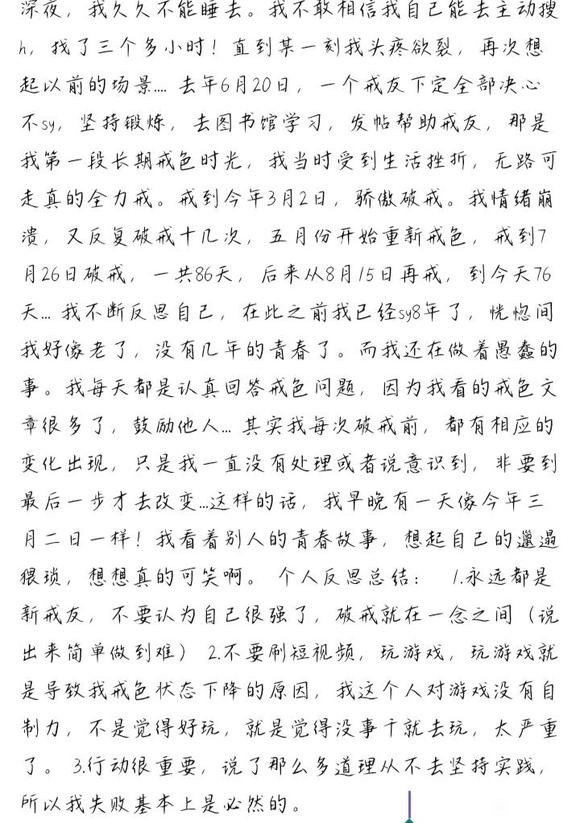 深夜，我久久不能睡去。我不敢相信我自己能去主动搜
h，找了三个多小时！直到某一刻我头疼欲裂，再次想
起以前的场景.... 去年6月20日，一个戒友下定全部决心
不sy，坚持锻炼，去图书馆学习，发帖帮助戒友，那是
我第一段长期戒色时光，我当时受到生活挫折，无路可
走真的全力戒。戒到今年3月2日，骄傲破戒。我情绪崩
溃，又反复破戒十几次，五月份开始重新戒色，戒到7
月26日破戒，一共86天，后来从8月15日再戒，到今天76
天... 我不断反思自己，在此之前我已经sy8年了，恍惚间
我好像老了，没有几年的青春了。而我还在做着愚蠢的
事。我每天都是认真回答戒色问题，因为我看的戒色文
章很多了，鼓励他人... 其实我每次破戒前，都有相应的
变化出现，只是我一直没有处理或者说意识到，非要到
最后一步才去改变...这样的话，我早晚有一天像今年三
月二日一样！我看着别人的青春故事，想起自己的邋遢
猥琐，想想真的可笑啊。 个人反思总结： 1.永远都是
新戒友，不要认为自己很强了，破戒就在一念之间（说
出来简单做到难） 2.不要刷短视频，玩游戏，玩游戏就
是导致我戒色状态下降的原因，我这个人对游戏没有自
制力，不是觉得好玩，就是觉得没事干就去玩，太严重
了。 3.行动很重要，说了那么多道理从不去坚持实践，
所以我失败基本上是必然的。